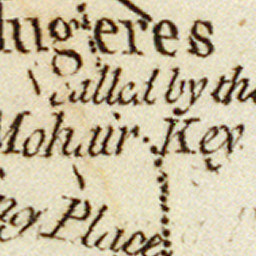 lugeres
called by the
Mohair Key
ng Place